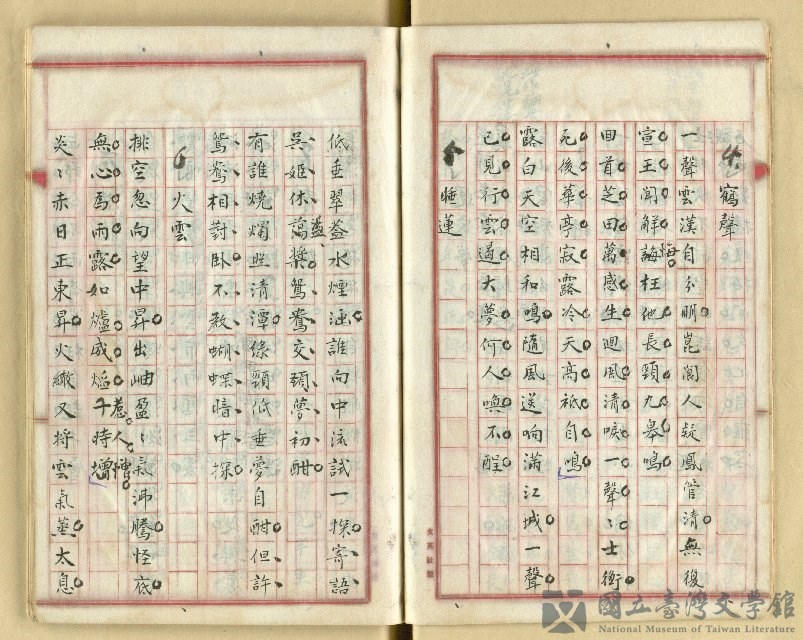 鶴聲
一聲雲漢自分明崑閬人疑鳳管清無復
宣王聞解誨枉他長頸九皋鳴
誨
回首芝田萬感生迴風清唳一聲〻士衡
死後華亭寂露冷天高祗自鳴
露白天空相和鳴隨風送响滿江城一聲
已見行雲遏大夢何人喚不醒
睡蓮
低垂翠蓋水煙涵誰向中流試一探寄語
吳姬休蕩槳鴛鴦交頸夢初酣
盪
有誰燒燭照清潭倏頸低垂夢自酣但許
鴛鴦相對臥不教蝴蝶暗中探
火雲
排空忽向望中昇出岫盈〻氣沸騰怪底
無心為雨露如爐威焰千時增
惹人憎
炎〻赤日正東昇火繖又將雲氣蒸太息
國立臺灣文學館
National Museum of Taiwan Literature